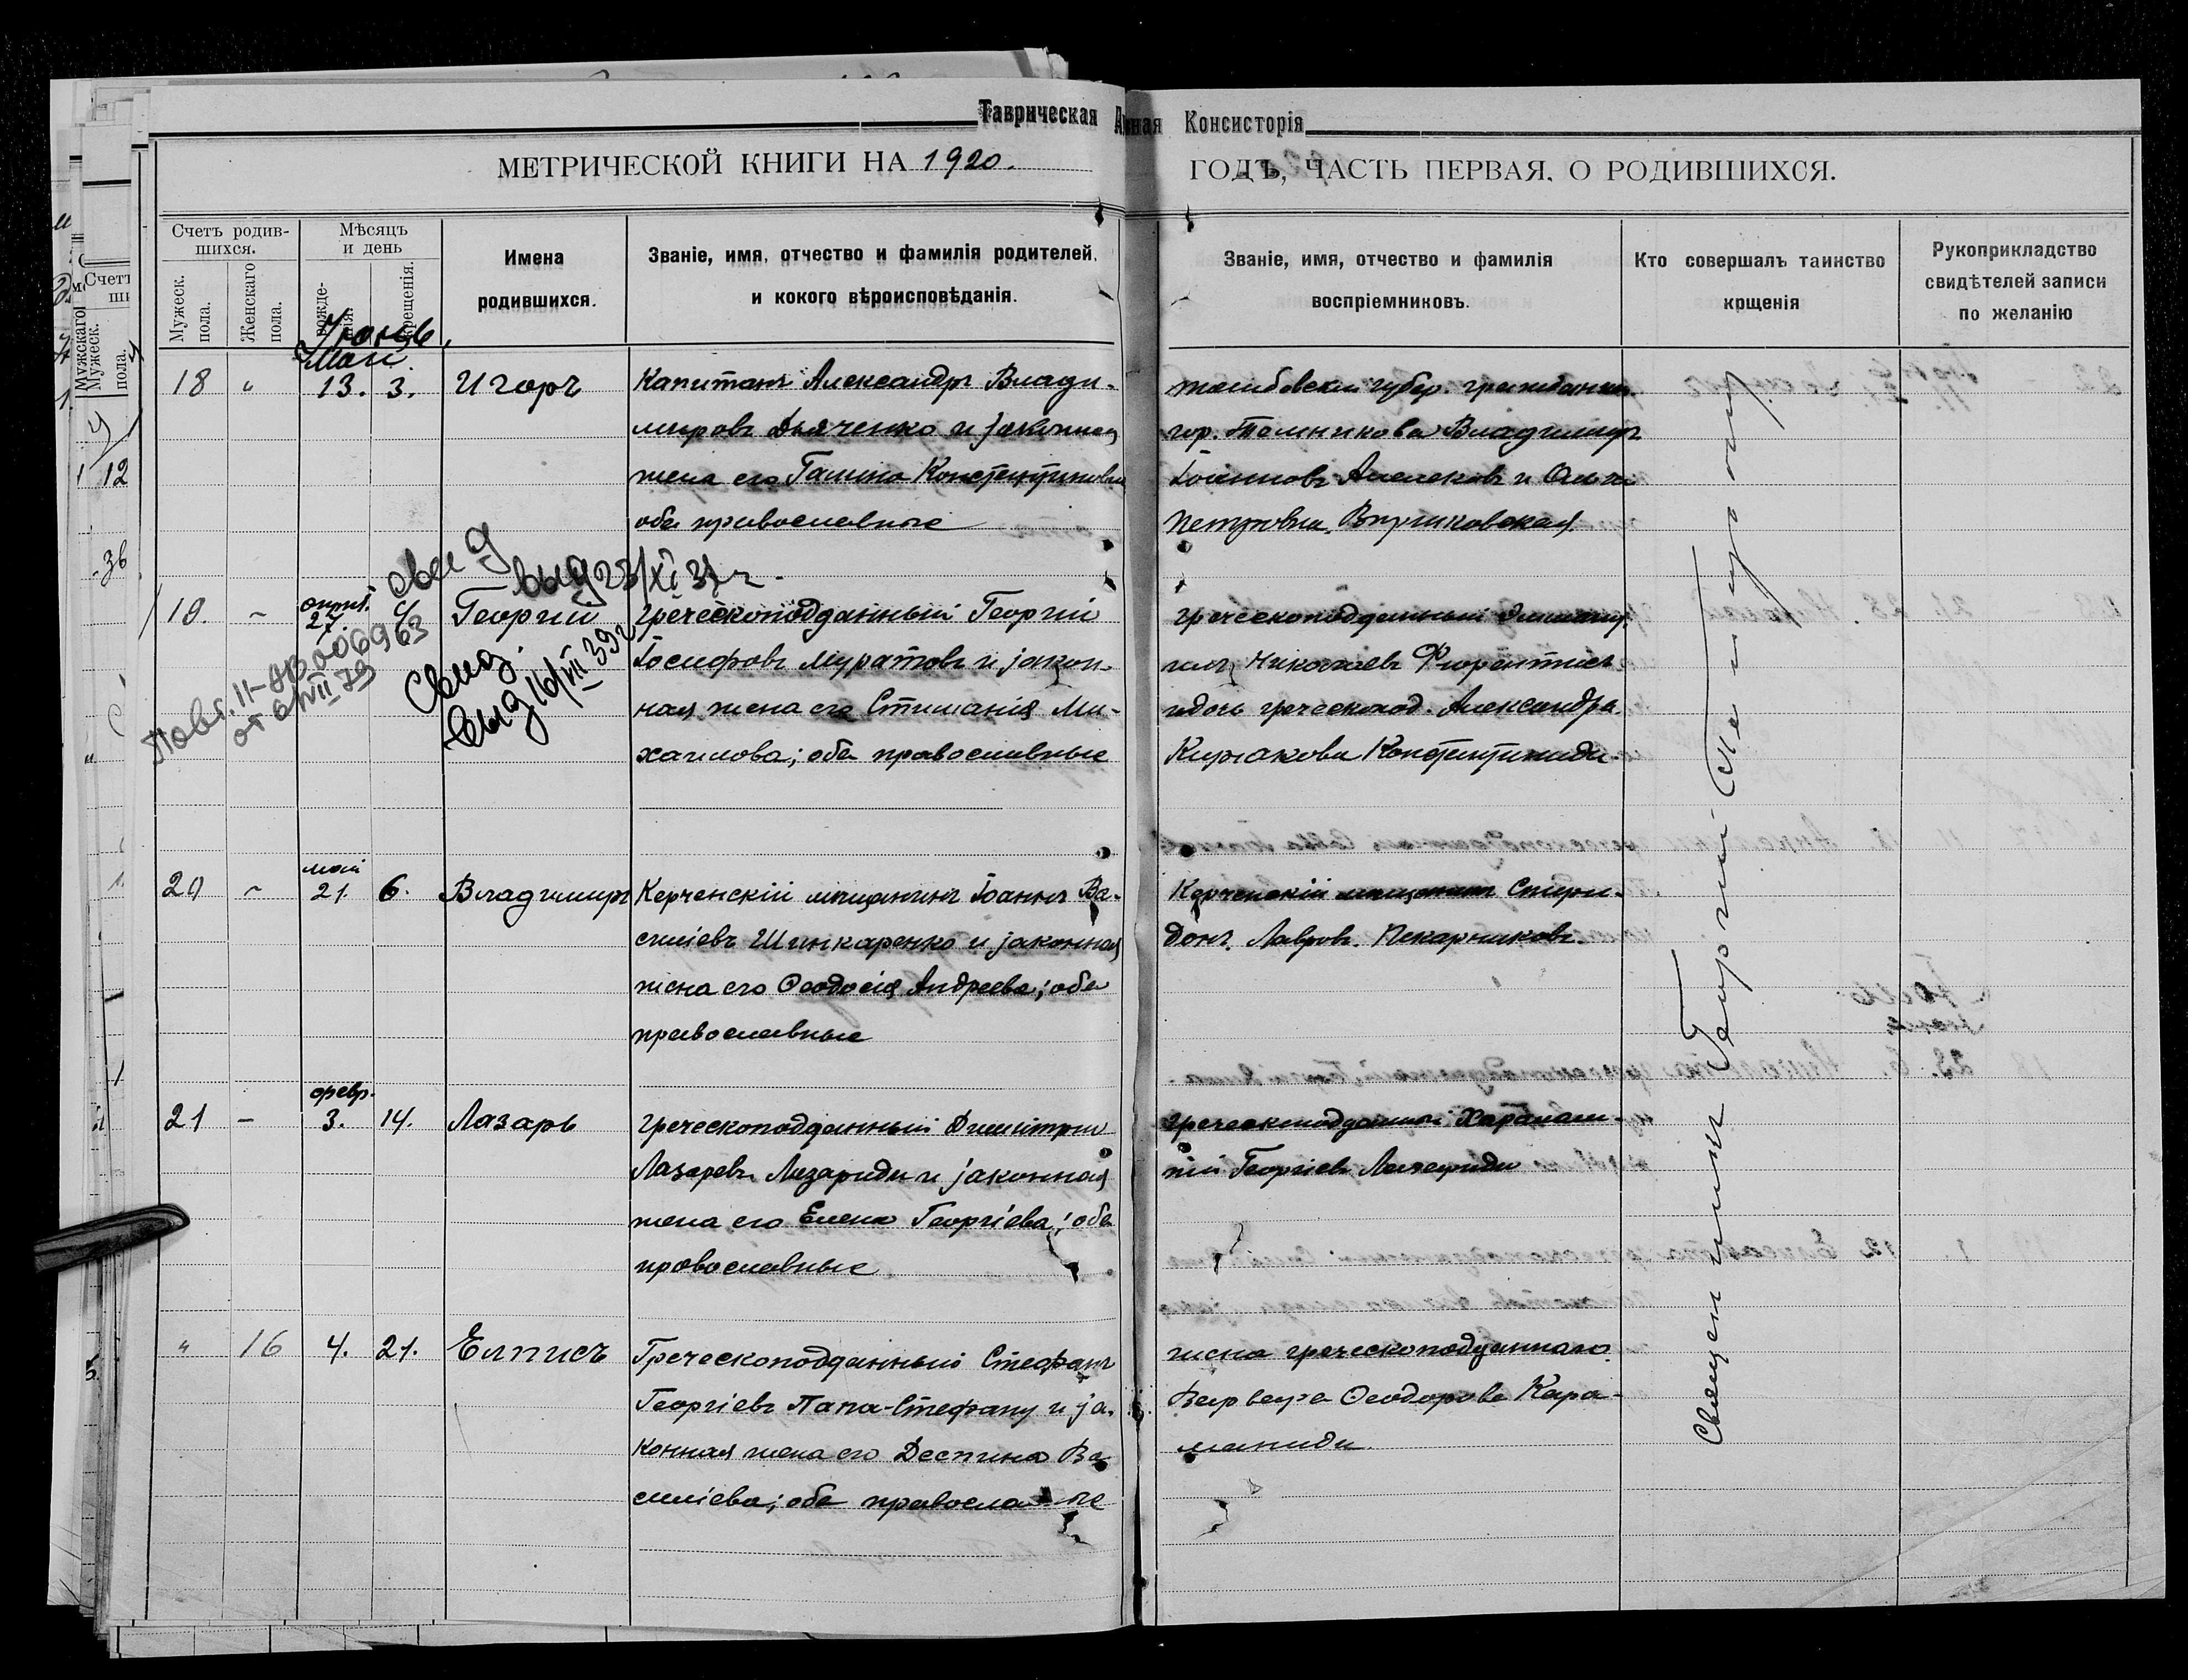 Таврическая
ная Консисторія
МЕТРИЧЕСКОЙ КНИГИ НА 1920.
ГОДЪ, ЧАСТЬ ПЕРВАЯ, О РОДИВШИХСЯ.
Счетъ родив-
шихся.
Мужеск.
пола.
Женскаго
пола.
Мѣсяцъ
и день
рожде-
нія.
крещенія.
Имена
родившихся.
Званіе, имя, отчество и фамилія родителей,
и кокого вѣроисповѣданія.
Званіе, имя, отчество и фамилія
воспріемниковъ.
Кто совершалъ таинство
крщенія
Рукоприкладство
свидѣтелей записи
по желанію
Юнь.
Май
18 " 13. 3. Игорь
Капитанъ Александръ Влади-
мировъ Дьяченко и законная
жена его Галина Константиновна
оба православные
губер. гражданин
гор. Темникова Владимиръ
Іоанновъ и Ольга
Петровна
свид
выд 23/XI 37 г.
19. - апрѣл. 27. 4 Георгій
Греческоподданный Георгій
Іосифовъ Муратовъ и закон-
ная жена его Стиліанія Ми-
хаилова; оба православные
Повт. II-АР 006963
от 6/VII 79
Свид.
выд 16/VII 39 г
греческоподданный
Николаевъ
и дочь греческопод. Александра
Кирьякова Константиниди.
20 - май 21. 6. Владимиръ
Керченскій мѣщанинъ Іоаннъ Ва-
силіевъ Шинкаренко и законная
жена его Ѳеодосія Андреева; оба
православные
Керченскій мѣщанинъ Спири-
донъ Лавровъ Пекарниковъ.
21 - февр. 3. 14. Лазарь
Греческоподданный Димитрій
Лазаревъ Лазариди и законная
жена его Елена Георгіева; оба
православные
греческоподданный Харалам-
пій Георгіевъ Лазариди
" 16 4. 21. Елписъ
Греческоподданный Стефанъ
Георгіевъ Папа-Стефану и за-
конная жена его Деспина Ва-
силіева; оба православные
жена греческоподданнаго
Варвара Ѳеодорова Кара-
маниди.
Священникъ Георгій